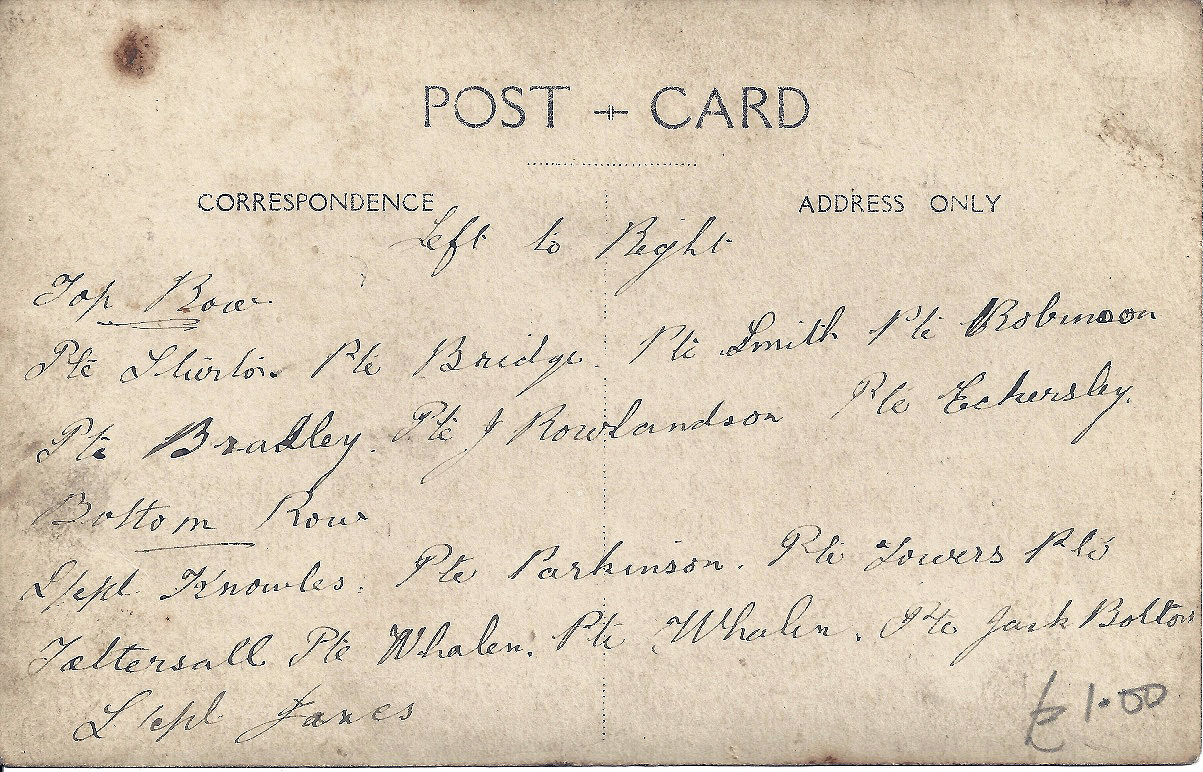 POST CARD
CORRESPONDENCE ADDRESS ONLY
Left to Right
Top Row
Pte Pte Bridge. Pte Smith Pte Robinson
Pte Bradley. Pte J Rowlandson Pte Eckersley.
Bottom Row
L/cpl Knowles. Pte Parkinson. Pte Towers Pte
Tattersall Pte Whalen. Pte Whalen. Pte Jack Bolton
L/cpl Janes
£1.00